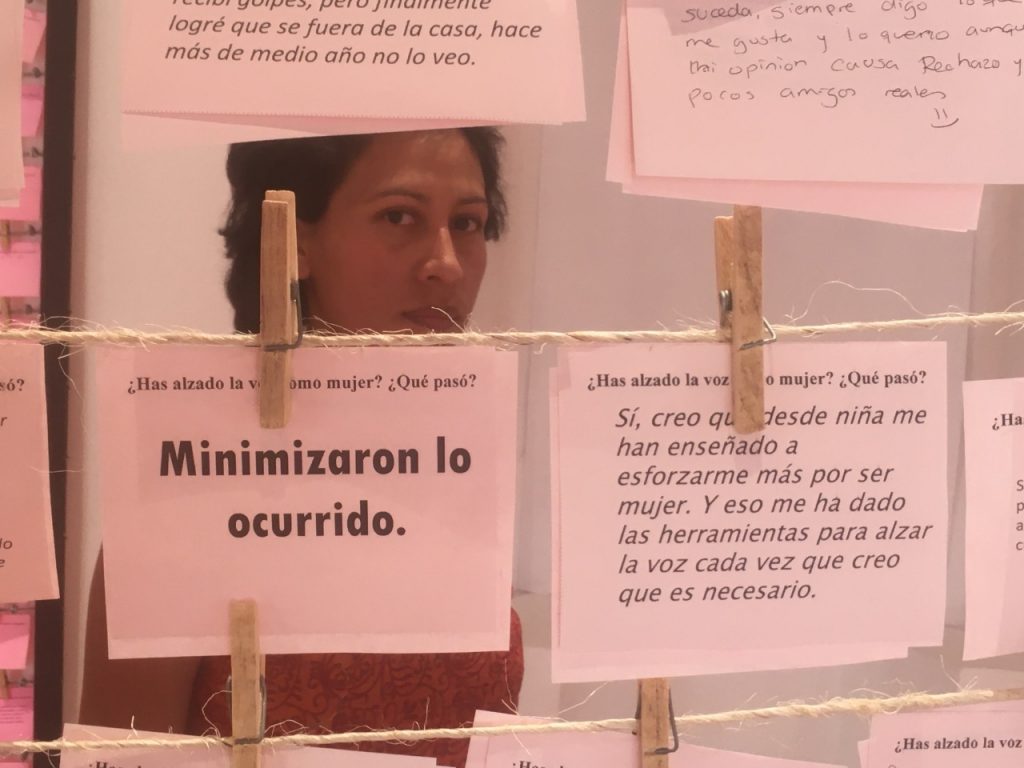 recibí golpes, pero finalmente
logré que se fuera de la casa, hace
más de medio año no lo veo.
suceda, siempre digo lo que
me gusta y lo quiero aunque
mi opinion causa Rechazo y
pocos amigos reales
só?
¿Has alzado la voz como mujer? ¿Qué pasó?
Minimizaron lo
ocurrido.
¿Has alzado la voz como mujer? ¿Qué pasó?
Sí, creo que desde niña me
han enseñado a
esforzarme más por ser
mujer. Y eso me ha dado
las herramientas para alzar
la voz cada vez que creo
que es necesario.
¿Ha
¿Has
¿Has
¿Has alzado la voz